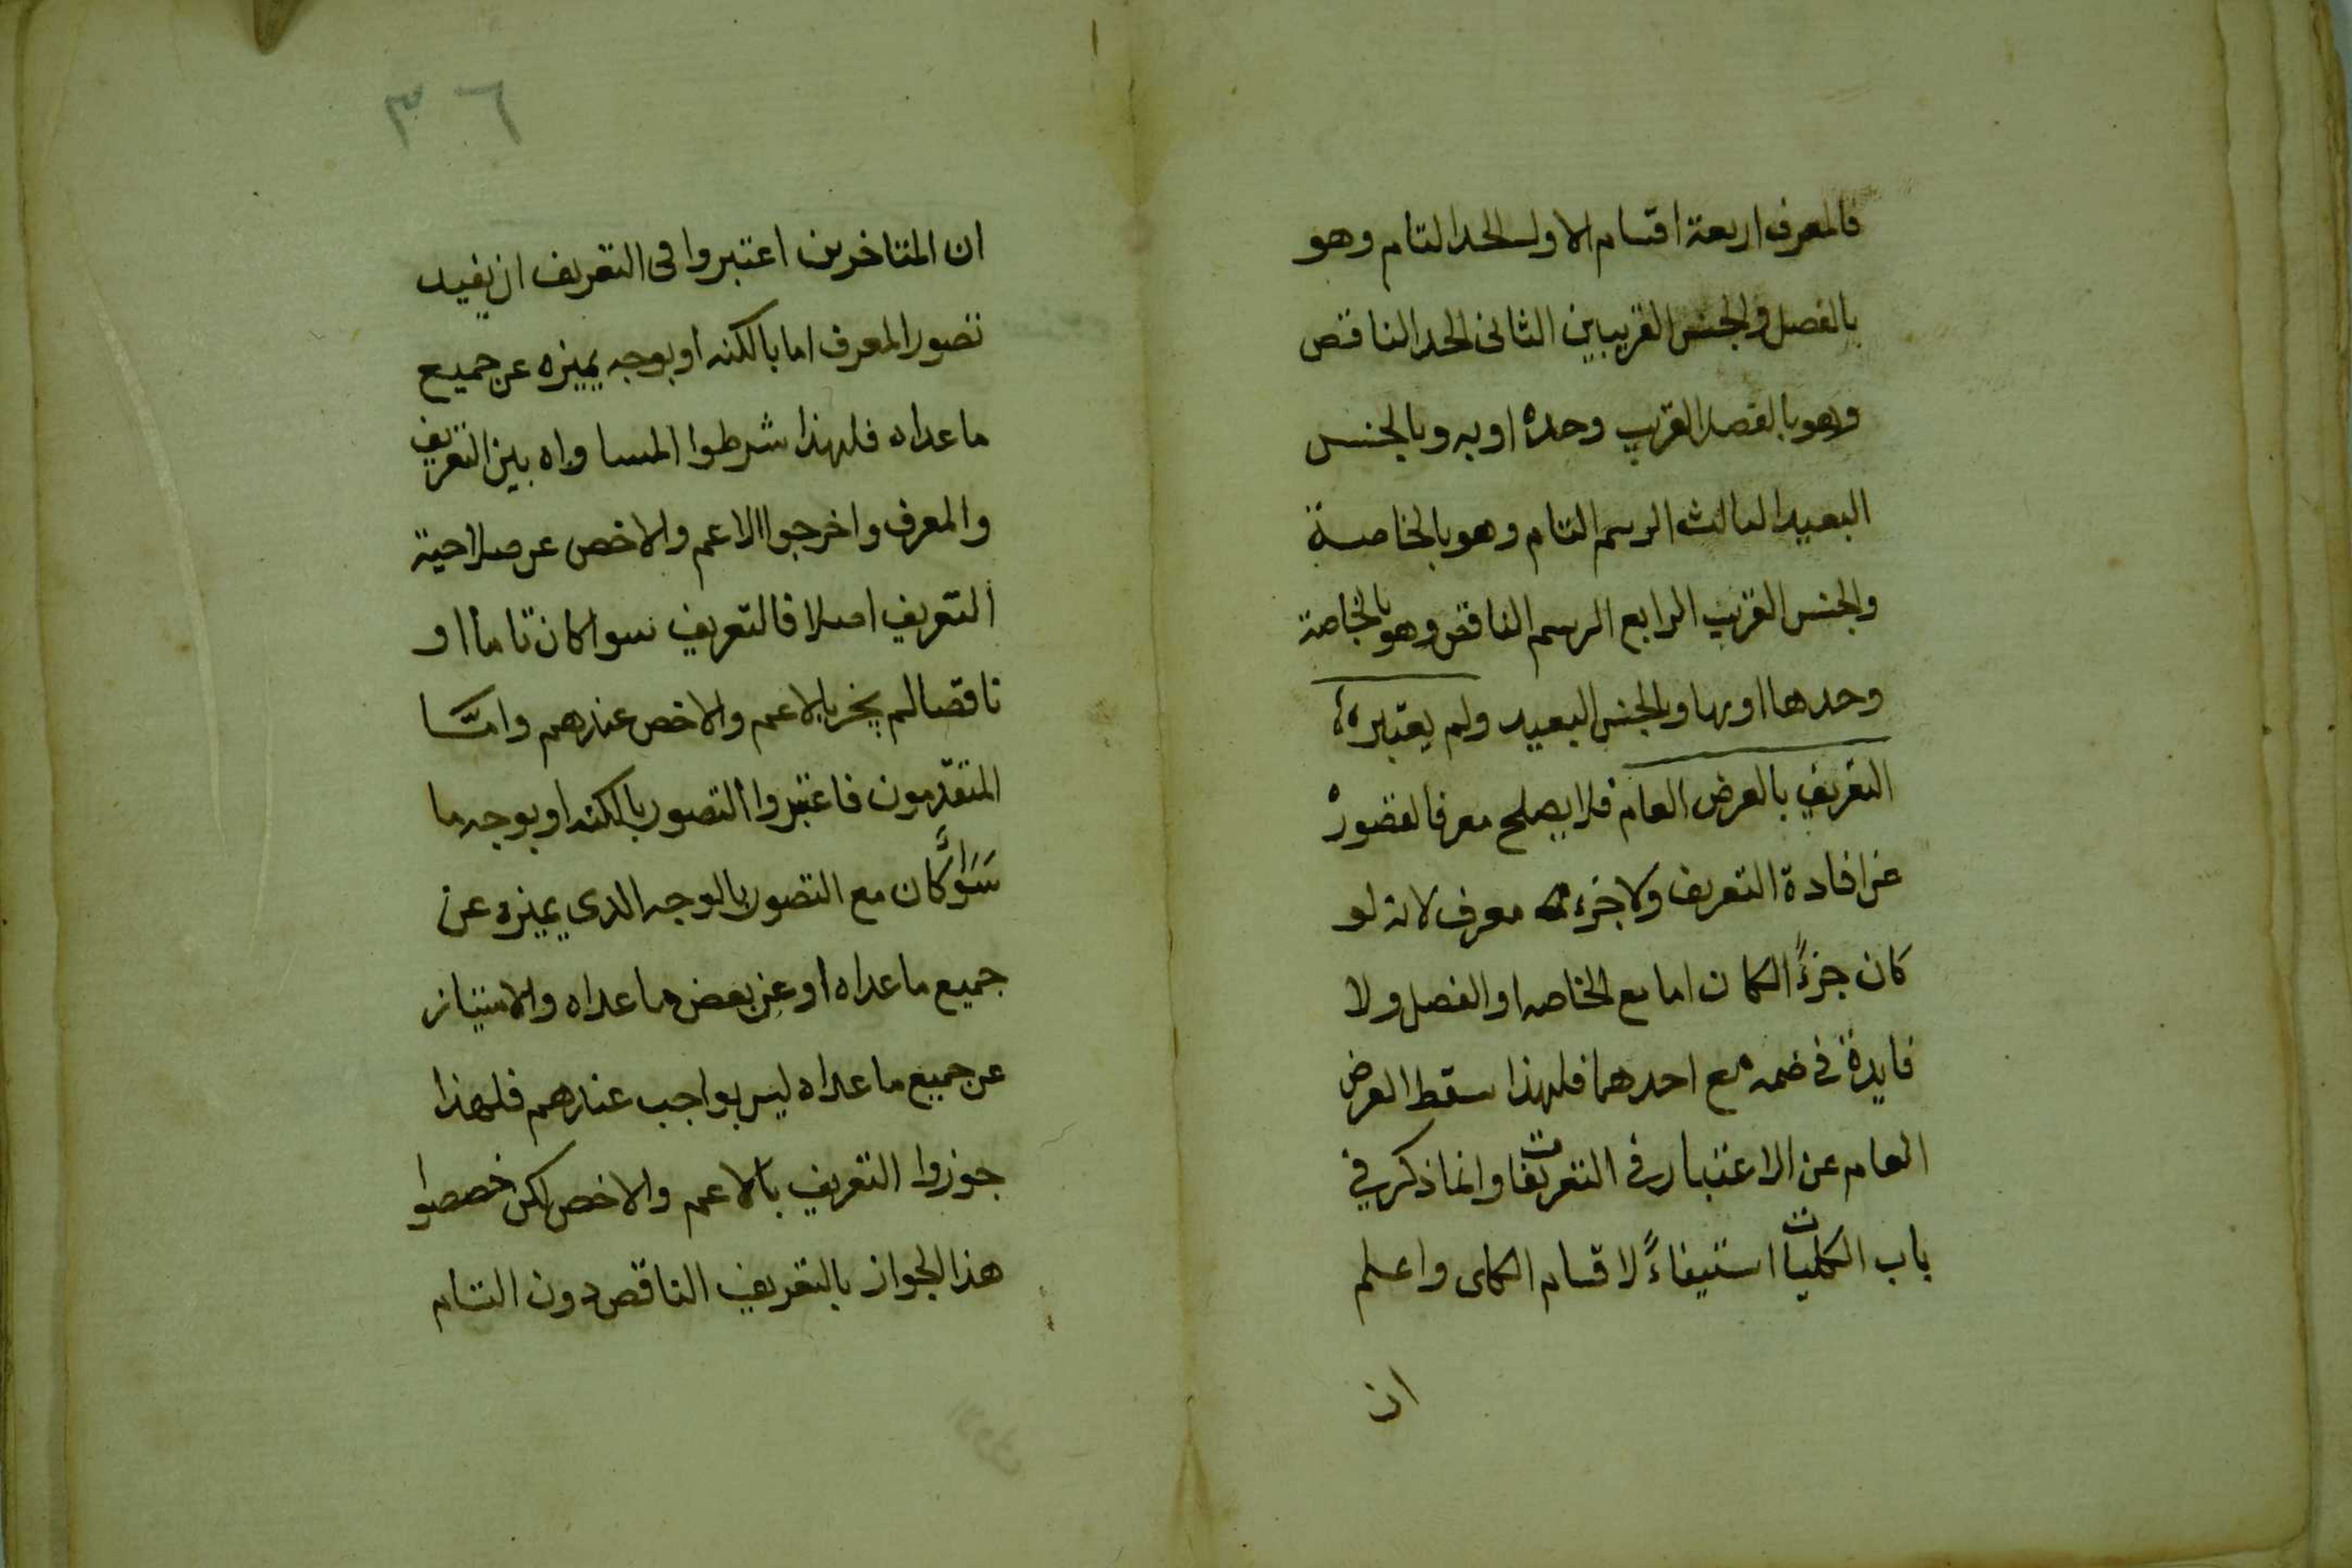 فالمعرف اربعة اقسام الاول الحد التام وهو
بالفصل والجنس القريبين الثانى الحد الناقص
وهو بالفصل القريب وحده او به وبالجنس
البعيد الثالث الرسم التام وهو بالخاصة
والجنس القريب الرابع الرسم الناقص وهو بالخاصة
وحدها او بها وبالجنس البعيد ولم يعتبروا
التعريف بالعرض العام فلا يصلح معرفا لقصوره
عن افادة التعريف ولا جزء معرف لانه لو
كان جزءً الكان اما مع الخاصه او الفصل ولا
فايدة في ضمه مع احدهما فلهذا سقط العرض
العام عن الاعتبار في التعريفات وانما ذكر في
باب الكليات استيفاءً لاقسام الكلى واعلم
ان
٣٦
ان المتاخرين اعتبروا فى التعريف ان يفيد
تصور المعرف اما بالكنه او بوجه يميزه عن جميع
ما عداه فلهذا شرطوا المساواه بين التعريف
والمعرف واخرجوا الاعم والاخص عن صلاحية
التعريف اصلا فالتعريف سوا كان تاما او
ناقصا لم يجز بالاعم والاخص عندهم وامّا
المتقدّمون فاعتبروا التصور بالكنه او بوجه ما
سَوَاءً كان مع التصور بالوجه الدى يميزه عن
جميع ما عداه او عن بعض ما عداه والامتياز
عن جميع ما عداه ليس بواجب عندهم فلهذا
جوزوا التعريف بالاعم والاخص لكن خصصوا
هذا الجواز بالتعريف الناقص دون التام